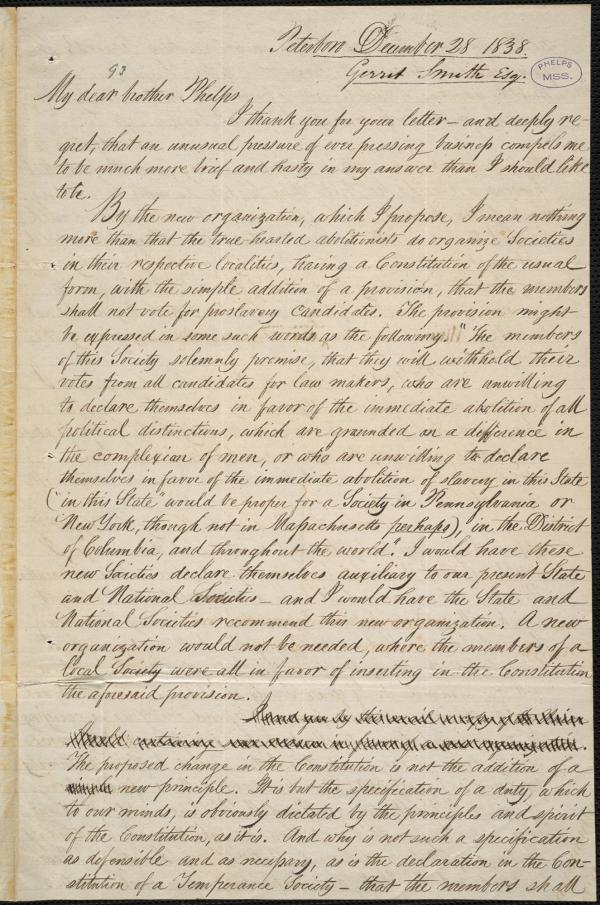 Peterboro December 28 1838.
Gerrit Smith Esq.
PHELPS
MSS.
93
My dear brother Phelps
I thank you for your letter – and deeply re-
gret, that an unusual pressure of ever pressing business compels me
to be much more brief and hasty in my answer than I should like
to be.
By the new organization, which I propose, I mean nothing
more than that the true-hearted abolitionists do organize Societies
in their respective localities, having a Constitution of the usual
form, with the simple addition of a provision, that the members
shall not vote for proslavery candidates. The provision might
be expressed in some such words as the following. "The members
of this Society solemnly promise, that they will withhold their
votes from all candidates for law makers, who are unwilling
to declare themselves in favor of the immediate abolition of all
political distinctions, which are grounded on a difference in
the complexion of men, or who are unwilling to declare
themselves in favor of the immediate abolition of slavery in this State
("in this State" would be proper for a Society in Pennsylvania or
New York, though not in Massachusetts perhaps), in the District
of Columbia, and throughout the world". I would have these
new Societies declare themselves auxiliary to our present State
and National Societies – and I would have the State and
National Societies recommend this new organization. A new
organization would not be needed, where the members of a
local Society were all in favor of inserting in the Constitution
the aforesaid provision.
I send you by this mail
The proposed change in the Constitution is not the addition of a
new principle. It is but the specification of a duty, which
to our minds, is obviously dictated by the principles and spirit
of the Constitution, as it is. And why is not such a specification
as defensible and as necessary, as is the declaration in the Con-
stitution of a Temperance Society – that the members shall